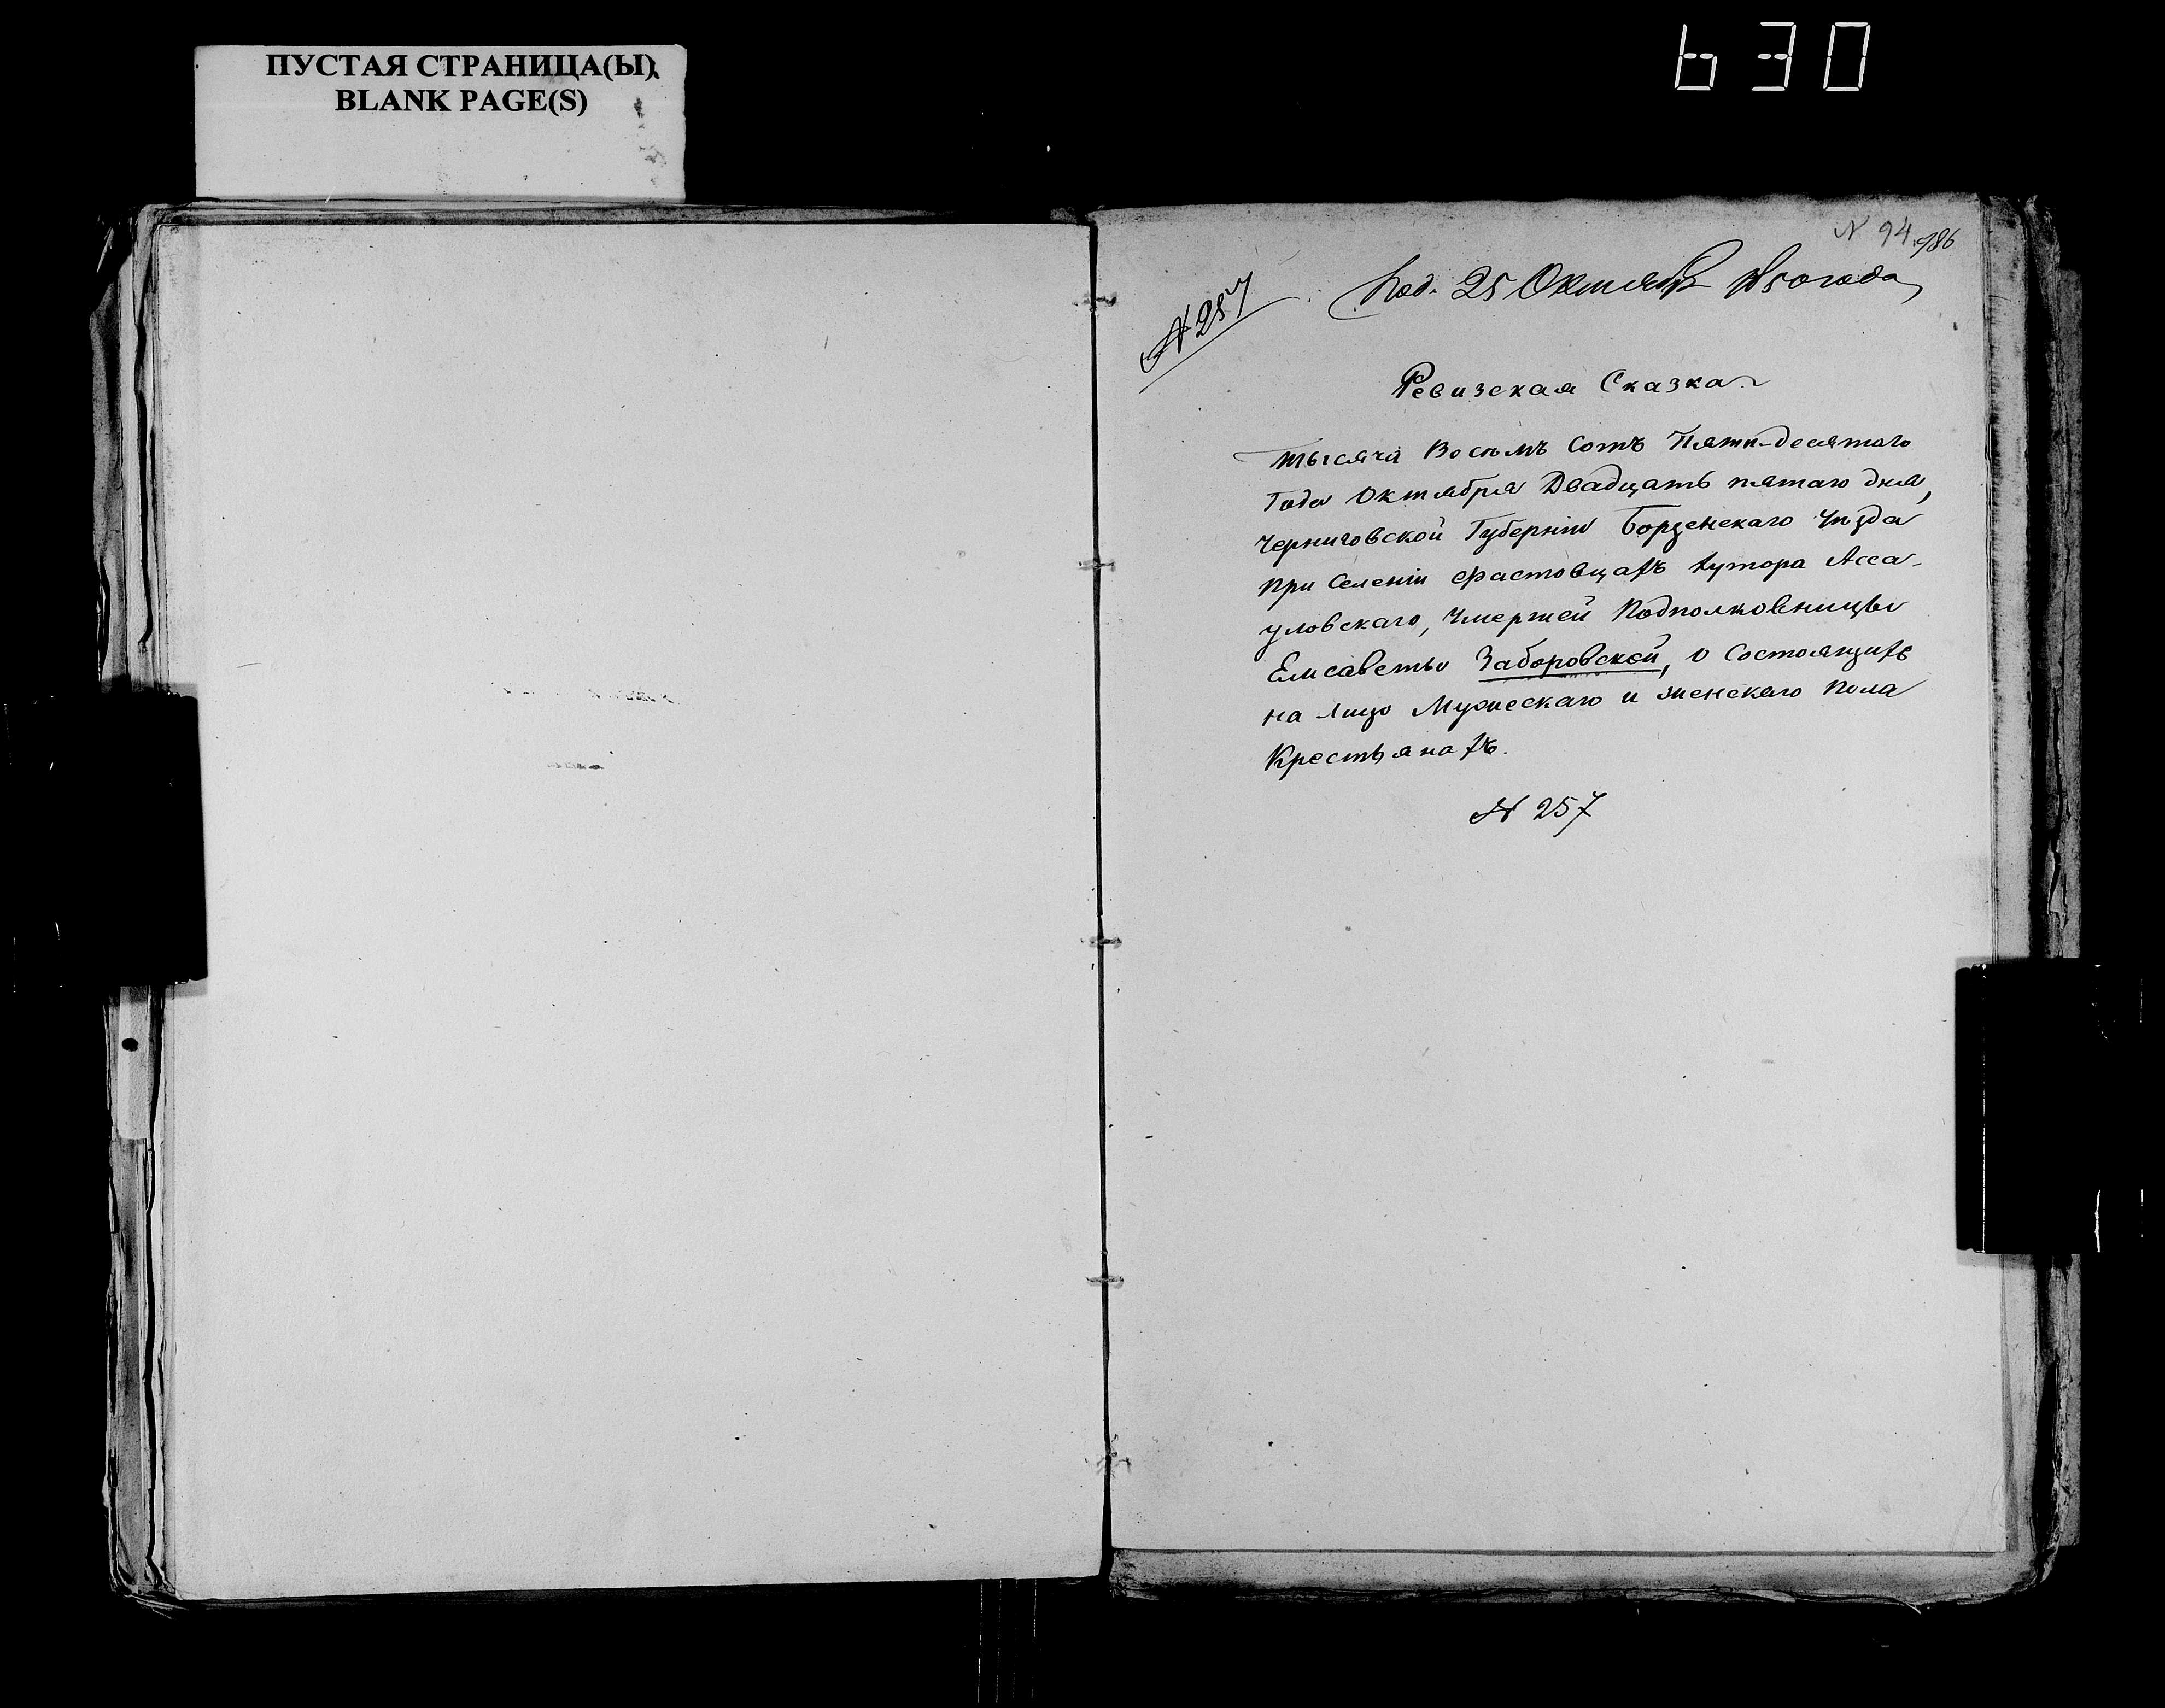 ПУСТАЯ СТРАНИЦА(Ы)
BLANK PAGE(S)
630
N 94. 986
№ 257
Под. 25 Октября 1850 года
Ревизская Сказка
Тысяча Восемь Сотъ Пяти-десятого
Года Октября Двадцать пятаго дня,
Черниговской Губерніи Борзенскаго Уѣзда
при Селеніи Фастовцахъ Хутора Асса-
уловскаго, Умершей Подполковницы
Елисаветы Заборовской, о Состоящихъ
на лицо Мужескаго и женскаго пола
Крестьянахъ.
№ 257